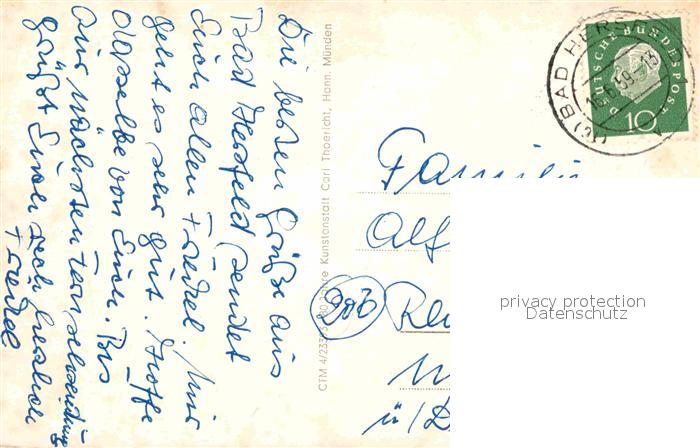 Die besten Grüße aus
Bad Hersfeld sendet
Euch allen Friedel. Mir
geht es sehr gut. Hoffe
dasselbe von Euch. Bis
zur nächsten Fernsehsendung
grüßt Euch recht herzlich
Friedel
CTM 4/233 Jahre Kunstanstalt Carl Thoericht, Hann. Münden
(16) BAD HERSF
16.6.59-15
DEUTSCHE BUNDESPOST
10
Familie
Alf
20b
ü/D
privacy protection
Datenschutz